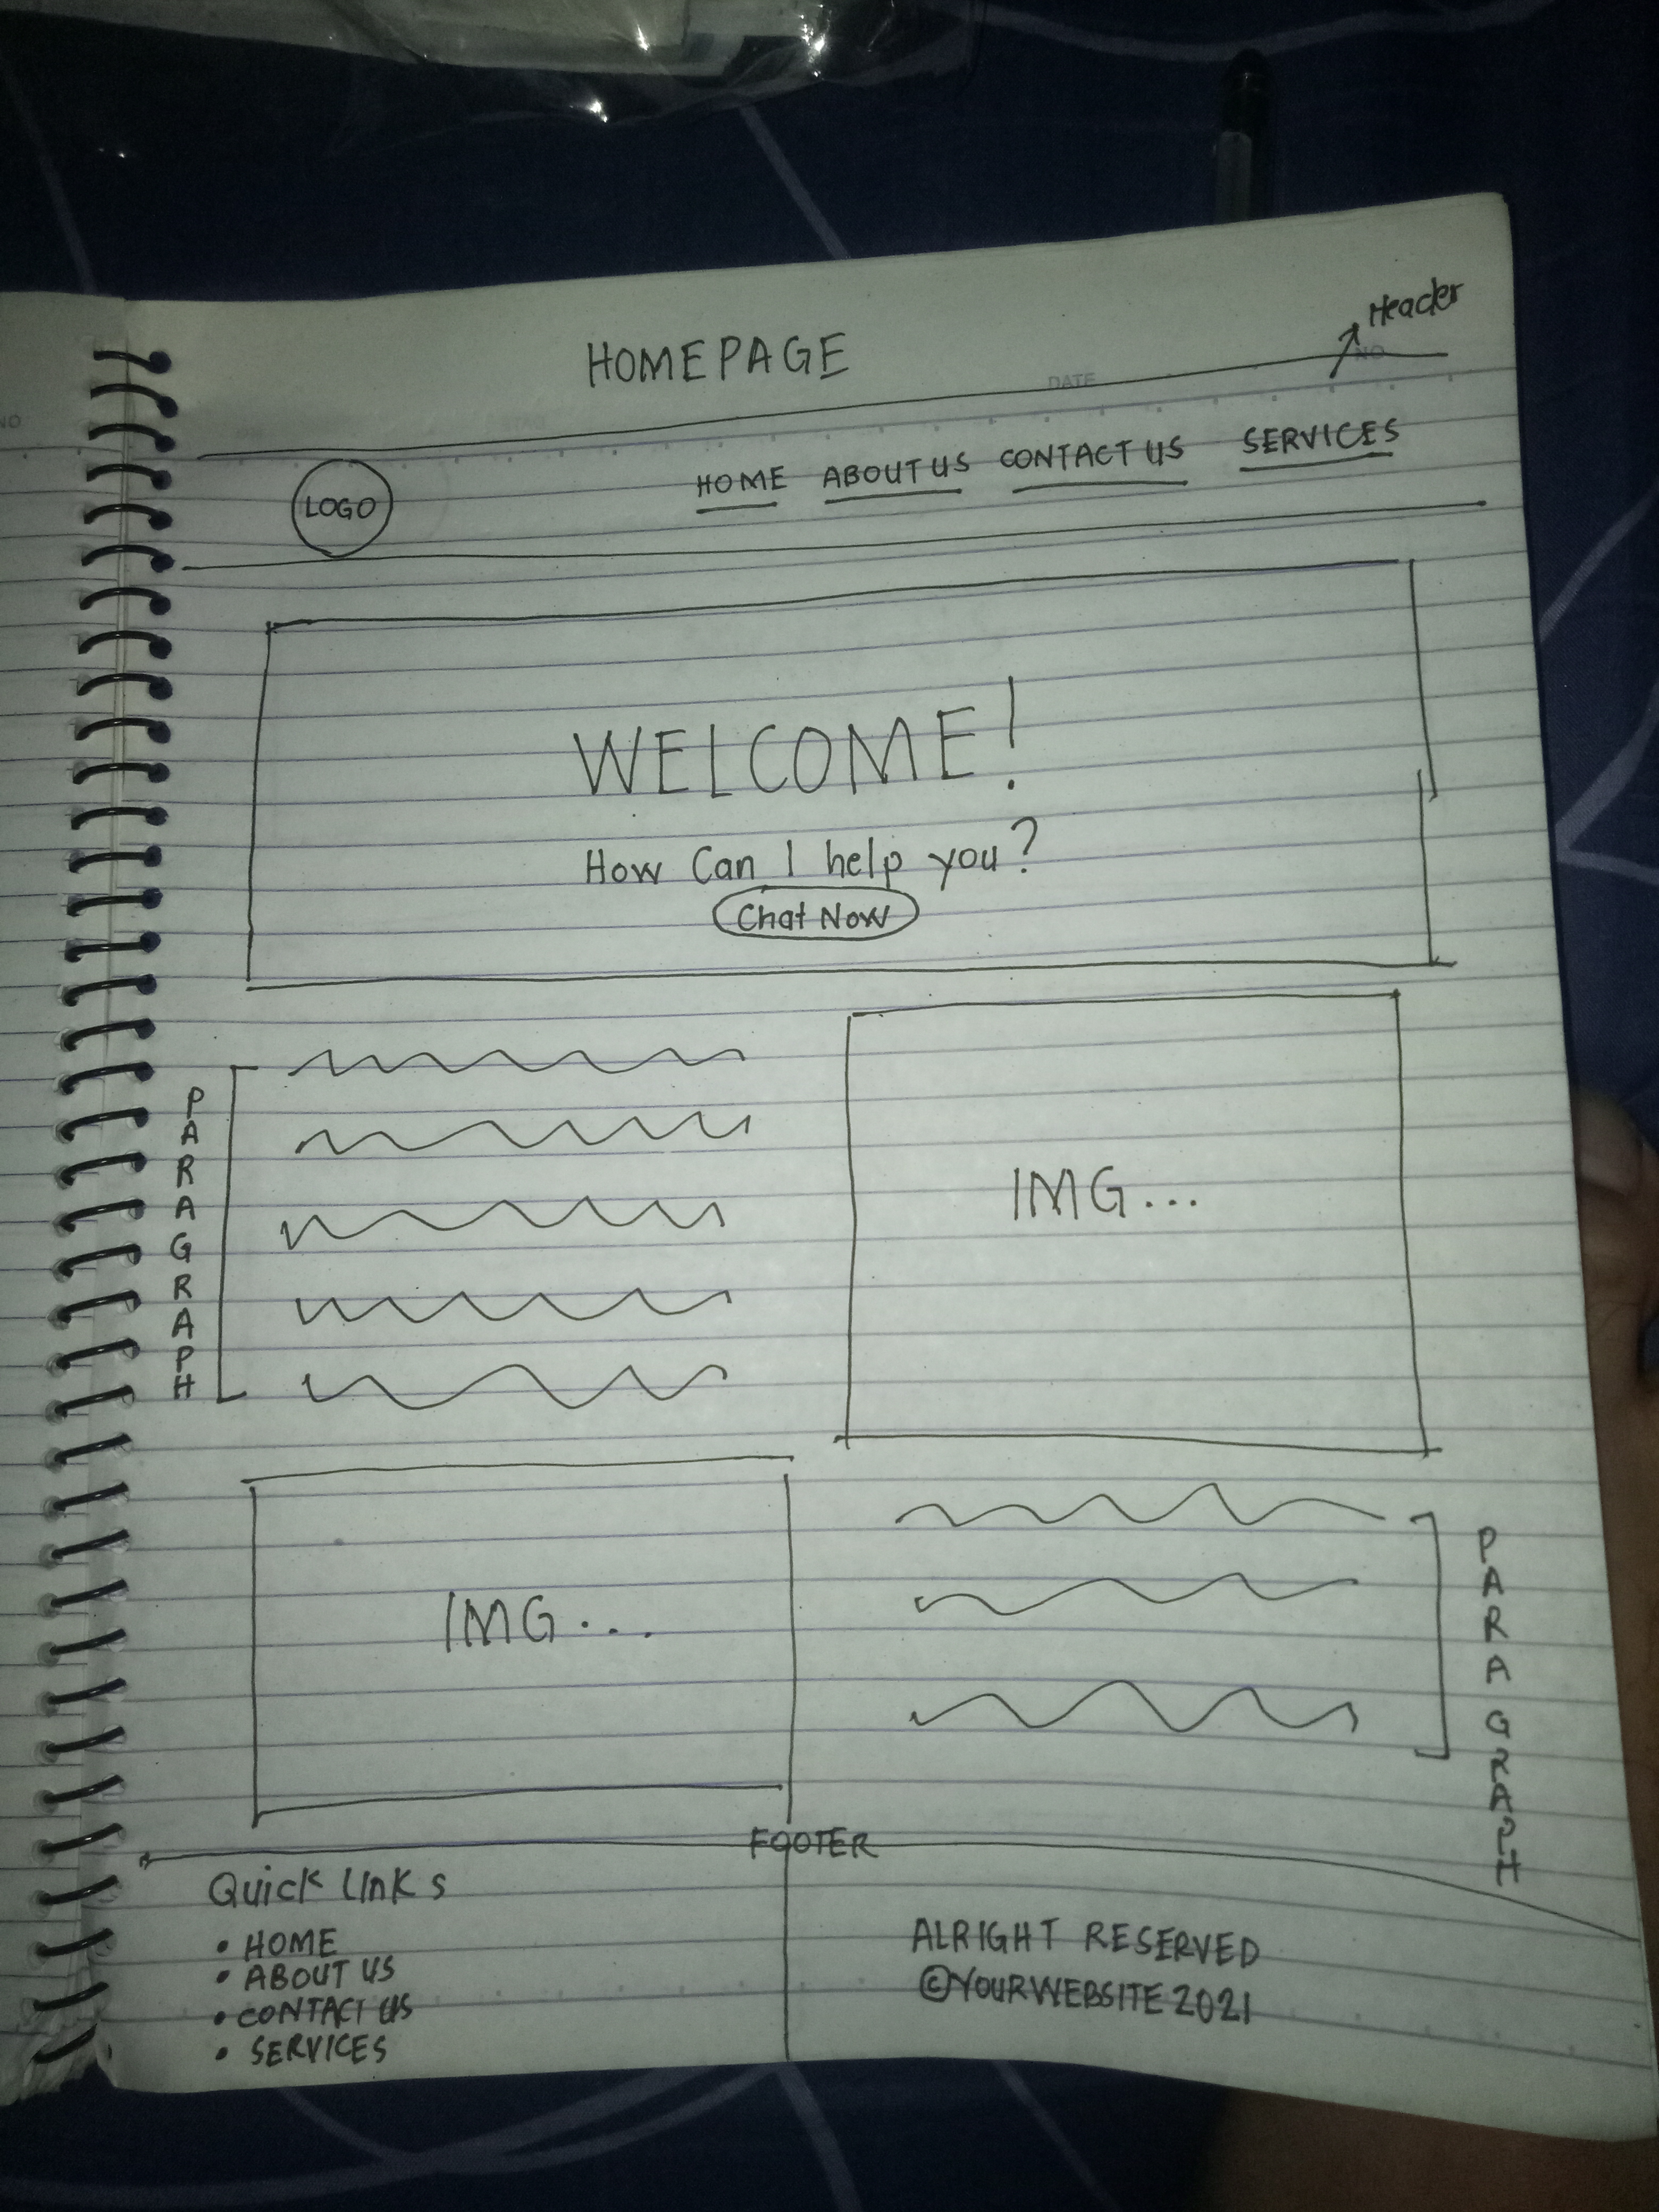 HOMEPAGE
Header
NO
DATE
NO
LOGO
HOME ABOUT US CONTACT US SERVICES
WELCOME!
How Can I help you?
Chat Now
PARAGRAPH
IMG...
IMG...
PARAGRAPH
FOOTER
Quick Links
• HOME
• ABOUT US
• CONTACT US
• SERVICES
ALRIGHT RESERVED
©YOURWEBSITE 2021